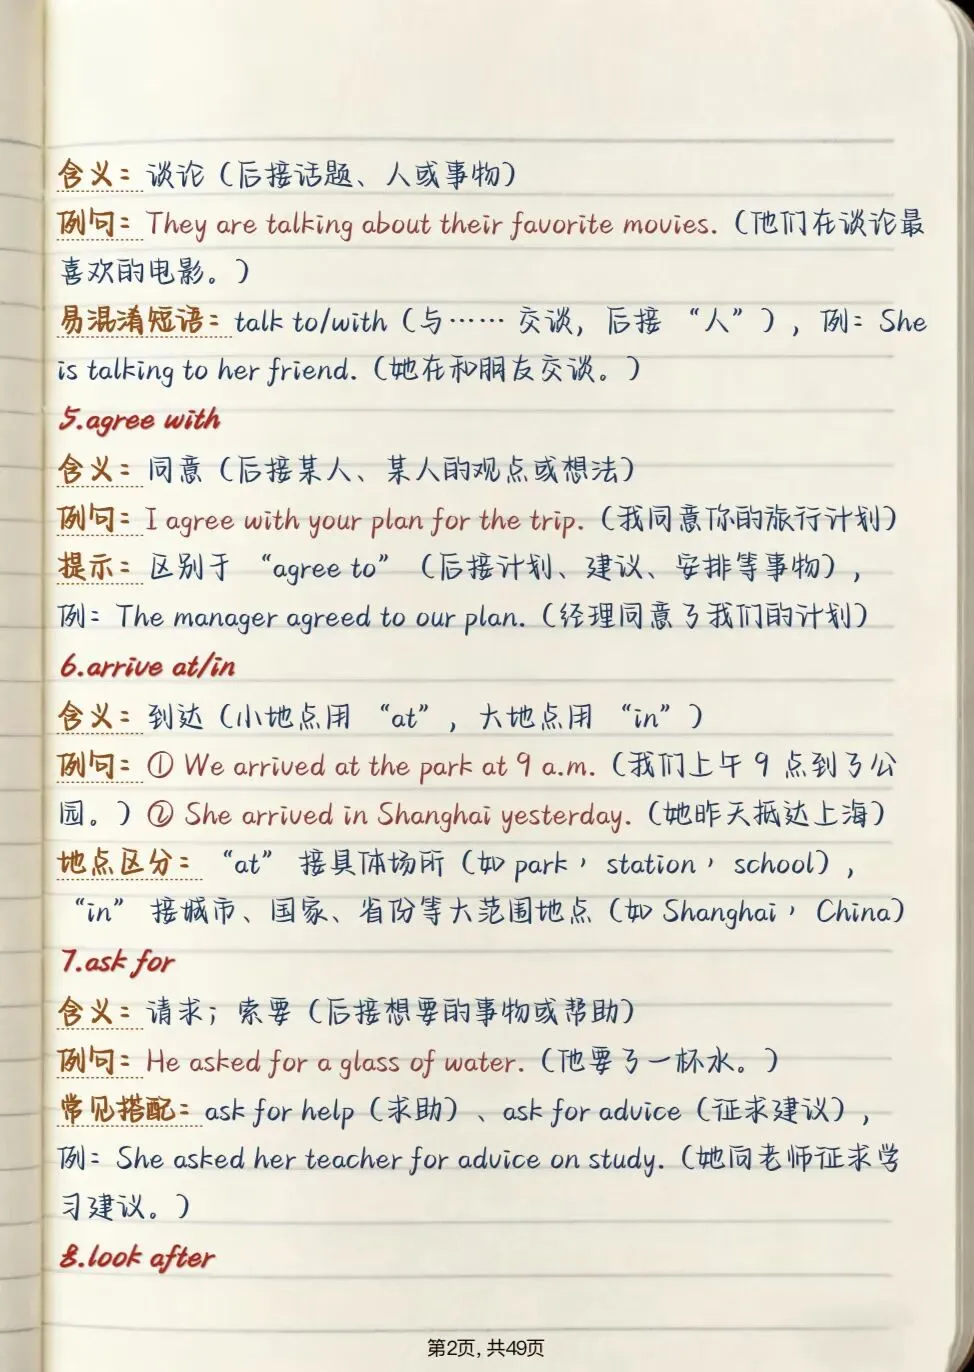 含义：谈论（后接话题、人或事物）
例句：They are talking about their favorite movies.（他们在谈论最
喜欢的电影。）
易混淆短语：talk to/with（与…… 交谈，后接 “人”），例：She
is talking to her friend.（她在和朋友交谈。）
5.agree with
含义：同意（后接某人、某人的观点或想法）
例句：I agree with your plan for the trip.（我同意你的旅行计划）
提示：区别于 “agree to”（后接计划、建议、安排等事物），
例：The manager agreed to our plan.（经理同意了我们的计划）
6.arrive at/in
含义：到达（小地点用 “at”，大地点用 “in”）
例句：① We arrived at the park at 9 a.m.（我们上午 9 点到了公
园。）② She arrived in Shanghai yesterday.（她昨天抵达上海）
地点区分：“at” 接具体场所（如 park，station，school），
“in” 接城市、国家、省份等大范围地点（如 Shanghai，China）
7.ask for
含义：请求；索要（后接想要的事物或帮助）
例句：He asked for a glass of water.（他要了一杯水。）
常见搭配：ask for help（求助）、ask for advice（征求建议），
例：She asked her teacher for advice on study.（她向老师征求学
习建议。）
8.look after
第2页, 共49页